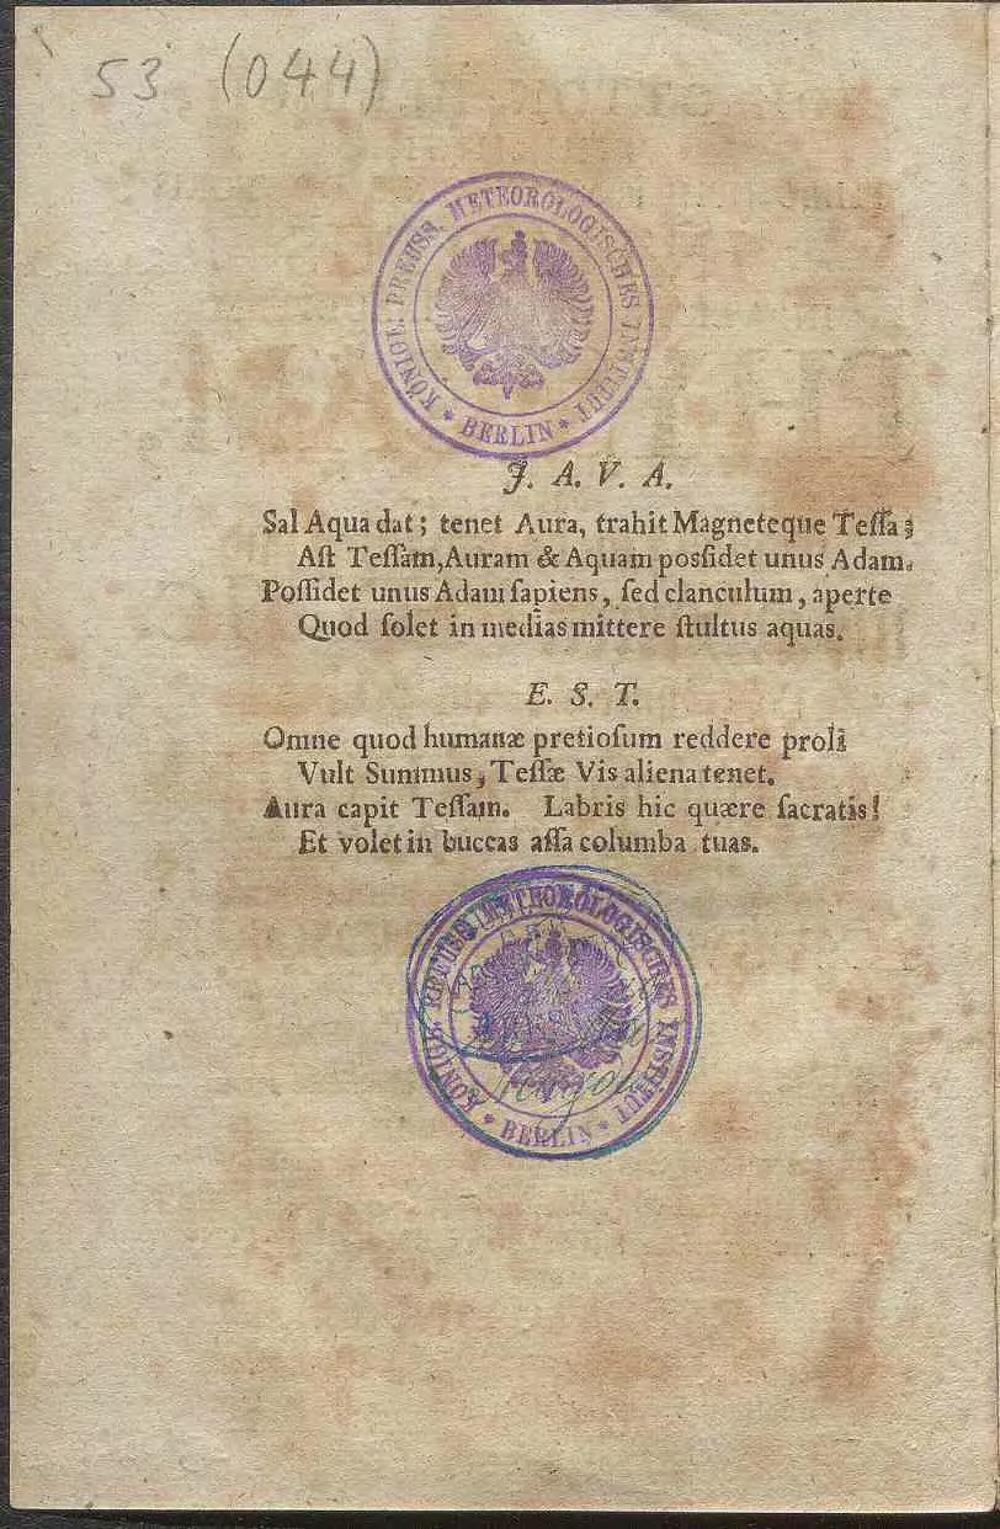 53 (044)
KÖNIGL: PREUSS. METEOROLOGISCHES INSTITUT
* BERLIN *
J. A. V. A.
Sal Aqua dat; tenet Aura, trahit Magneteque Teſſa;
Aſt Teſſam, Auram & Aquam posſidet unus Adam.
Poſſidet unus Adam ſapiens, ſed clanculum, aperte
Quod ſolet in medias mittere ſtultus aquas.
E. S. T.
Omne quod humanæ pretioſum reddere proli
Vult Summus, Teſſæ Vis aliena tenet.
Aura capit Teſſam. Labris hic quære ſacratis!
Et volet in buccas aſſa columba tuas.
KÖNIGL: PREUSS METEOROLOGISCHES INSTITUT
* BERLIN *